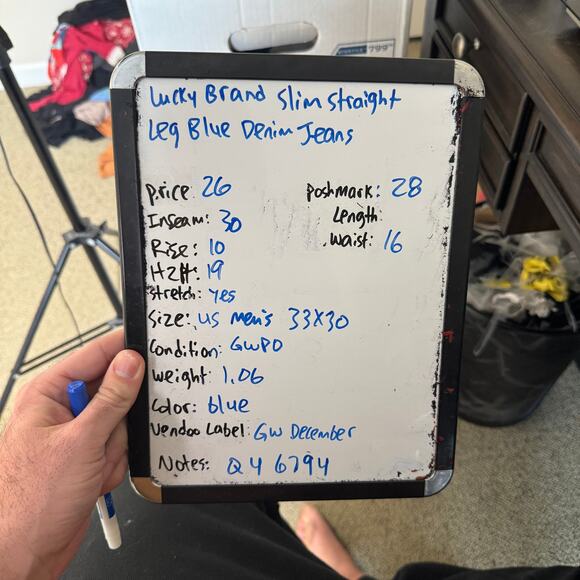 Lucky Brand Slim Straight
Leg Blue Denim Jeans
price: 26 poshmark: 28
Inseam: 30 Length:
Rise: 10 waist: 16
H2H: 19
stretch: yes
Size: US men's 33x30
Condition: GWPO
weight: 1.06
Color: blue
Vendoo Label: GW December
Notes: Q4 6794
799